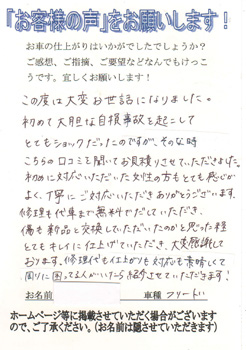 「お客様の声」をお願いします！
お車の仕上がりはいかがでしたでしょうか？
ご感想、ご指摘、ご要望などなんでもけっこ
うです。宜しくお願いします！
この度は大変お世話になりました。
初めて大胆な自損事故を起こして
とてもショックだったのですが、そんな時
こちらの口コミを聞いてお見積りさせていただきました。
初めに対応いただいた女性の方もとても感じが
よく、丁寧にご対応いただきありがとうございます。
修理も代車まで無料でだしていただき、
傷も新品と交換していただいたのかと思った程
とてもキレイに仕上げていただき、大変感謝して
おります。修理代も仕上がりも対応も素晴らしくて
周りに困ってる人がいたら紹介させていただきます！
お名前 車種 フリード
ホームページ等に掲載させていただく場合がございます
ので、ご了承ください。（お名前は隠させていただきます）